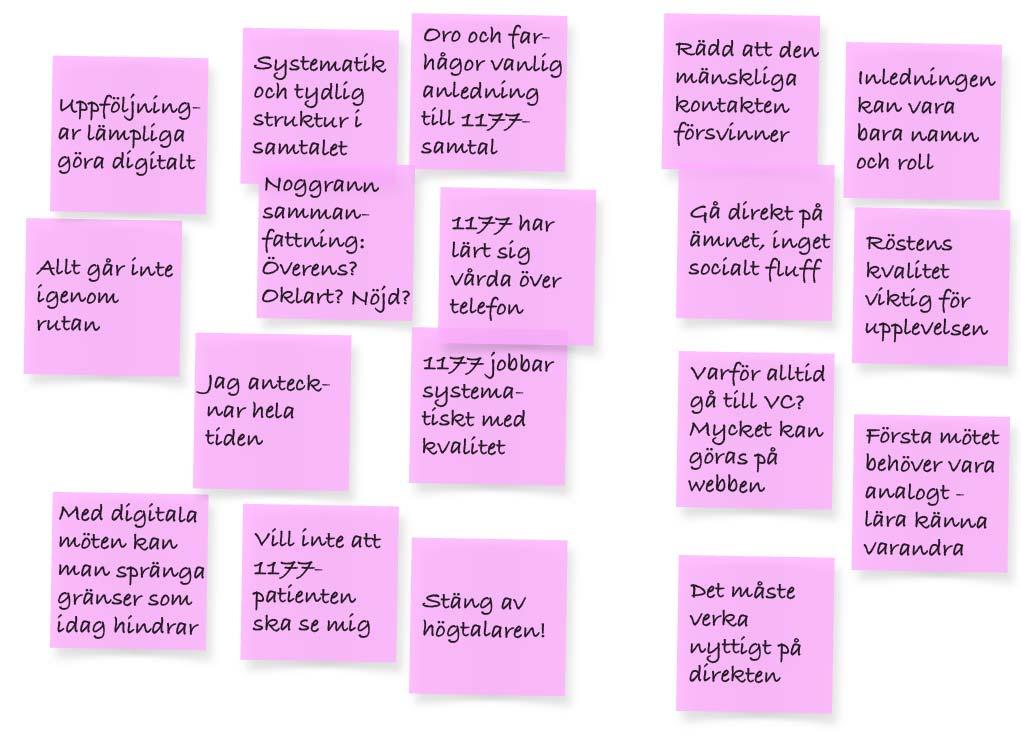 Uppföljning-
ar lämpliga
göra digitalt
Systematik
och tydlig
struktur i
samtalet
Oro och far-
hågor vanlig
anledning
till 1177-
samtal
Rädd att den
mänskliga
kontakten
försvinner
Inledningen
kan vara
bara namn
och roll
Allt går inte
igenom
rutan
Noggrann
samman-
fattning:
Överens?
Oklart? Nöjd?
1177 har
lärt sig
vårda över
telefon
Gå direkt på
ämnet, inget
socialt fluff
Röstens
kvalitet
viktig för
upplevelsen
Jag anteck-
nar hela
tiden
1177 jobbar
systema-
tiskt med
kvalitet
Varför alltid
gå till VC?
Mycket kan
göras på
webben
Första mötet
behöver vara
analogt -
lära känna
varandra
Med digitala
möten kan
man spränga
gränser som
idag hindrar
Vill inte att
1177-
patienten
ska se mig
Stäng av
högtalaren!
Det måste
verka
nyttigt på
direkten